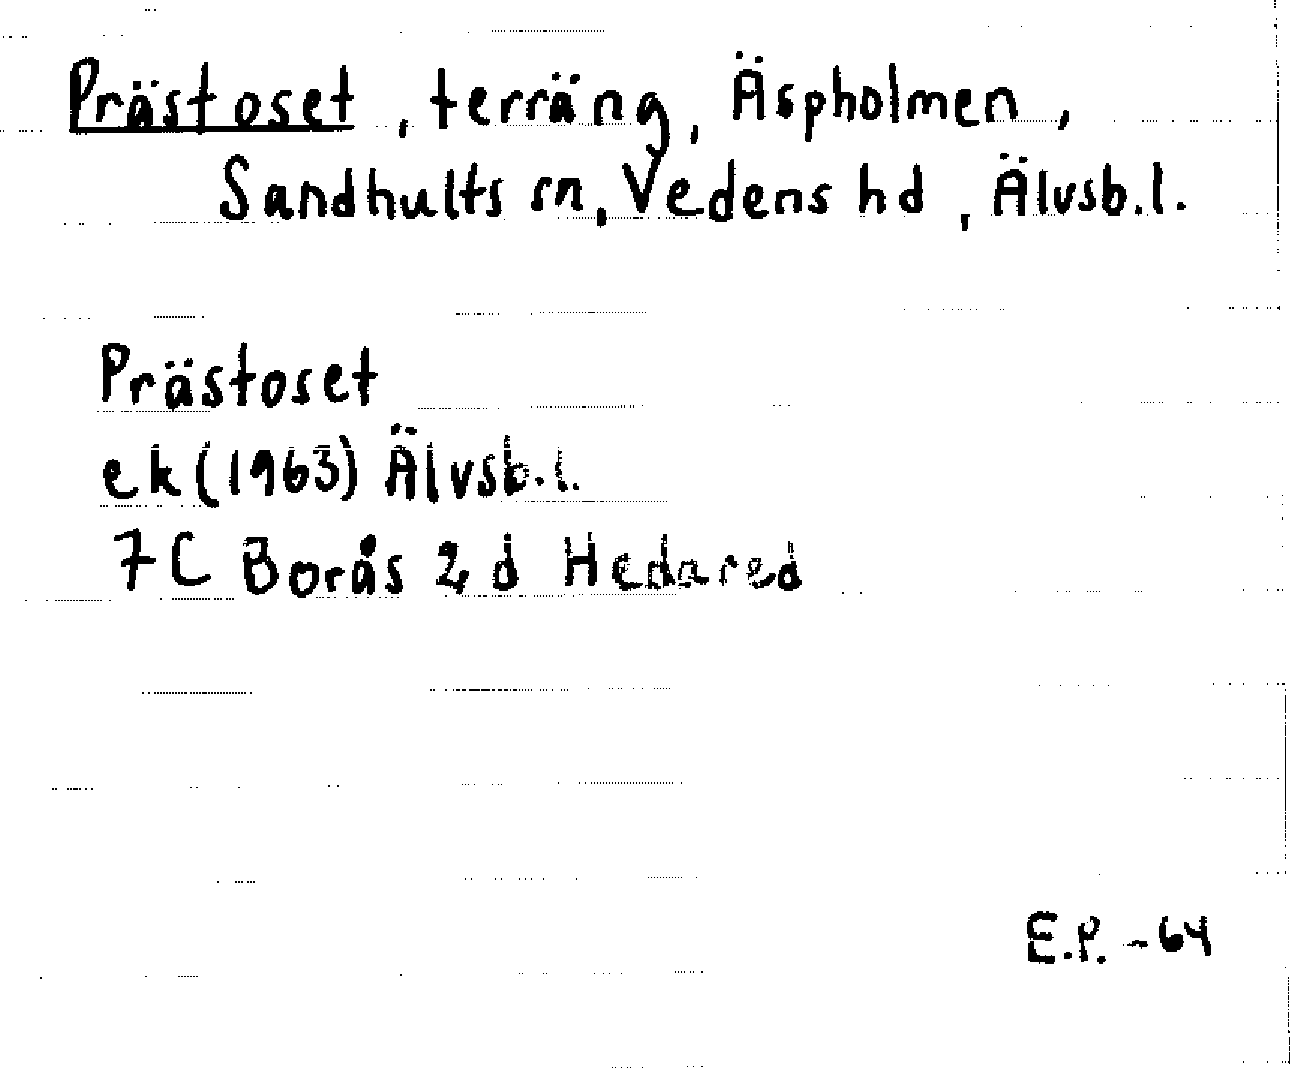 Prästoset, terräng, Äspholmen,
Sandhults sn, Vedens hd, Älvsb.l.
Prästoset
ek (1963) Älvsb.l.
7C Borås 2d Hedared
E.P. -64